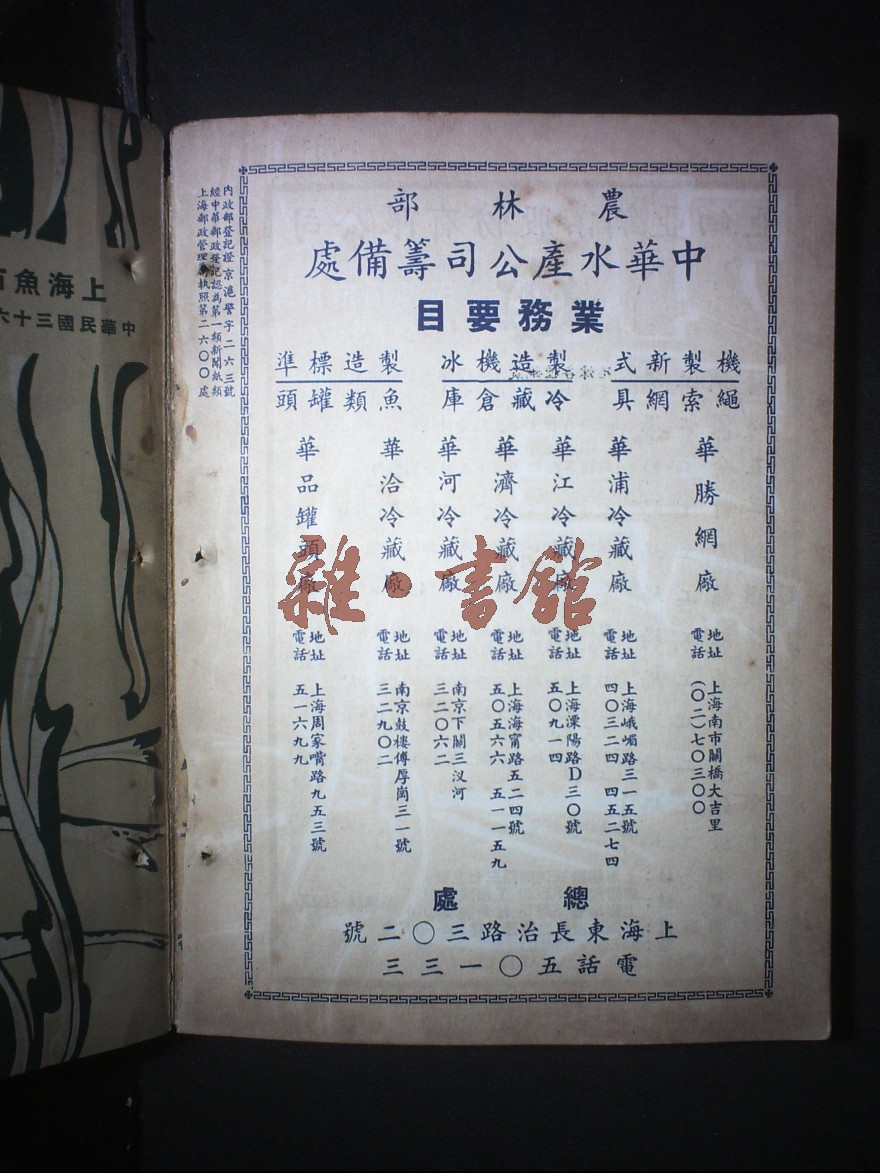 農林部
中華水產公司籌備處
業務要目
機製新式
繩索網具
製造機冰
冷藏倉庫
製造標準
魚類罐頭
華勝網廠
地址 上海南市關橋大吉里
電話 (〇二)七〇三〇〇
華浦冷藏廠
地址 上海峨嵋路三一五號
電話 四〇三二四 四五二七四
華江冷藏廠
地址 上海溧陽路D三〇號
電話 五〇九一四
華濟冷藏廠
地址 上海海甯路五二四號
電話 五〇五六六 五一一五九
華河冷藏廠
地址 南京下關三汊河
電話 三二〇六二
華洽冷藏廠
地址 南京鼓樓傅厚崗三一號
電話 三二九〇二
華品罐頭廠
地址 上海周家嘴路九五三號
電話 五一六九九
總處
上海東長治路三〇二號
電話五〇一三三
內政部登記證京滬警字二六三號
經中華郵政登記認為第一類新聞紙類
上海郵政管理局執照第二六〇〇處
上海魚市
中華民國三十六
雜·書館